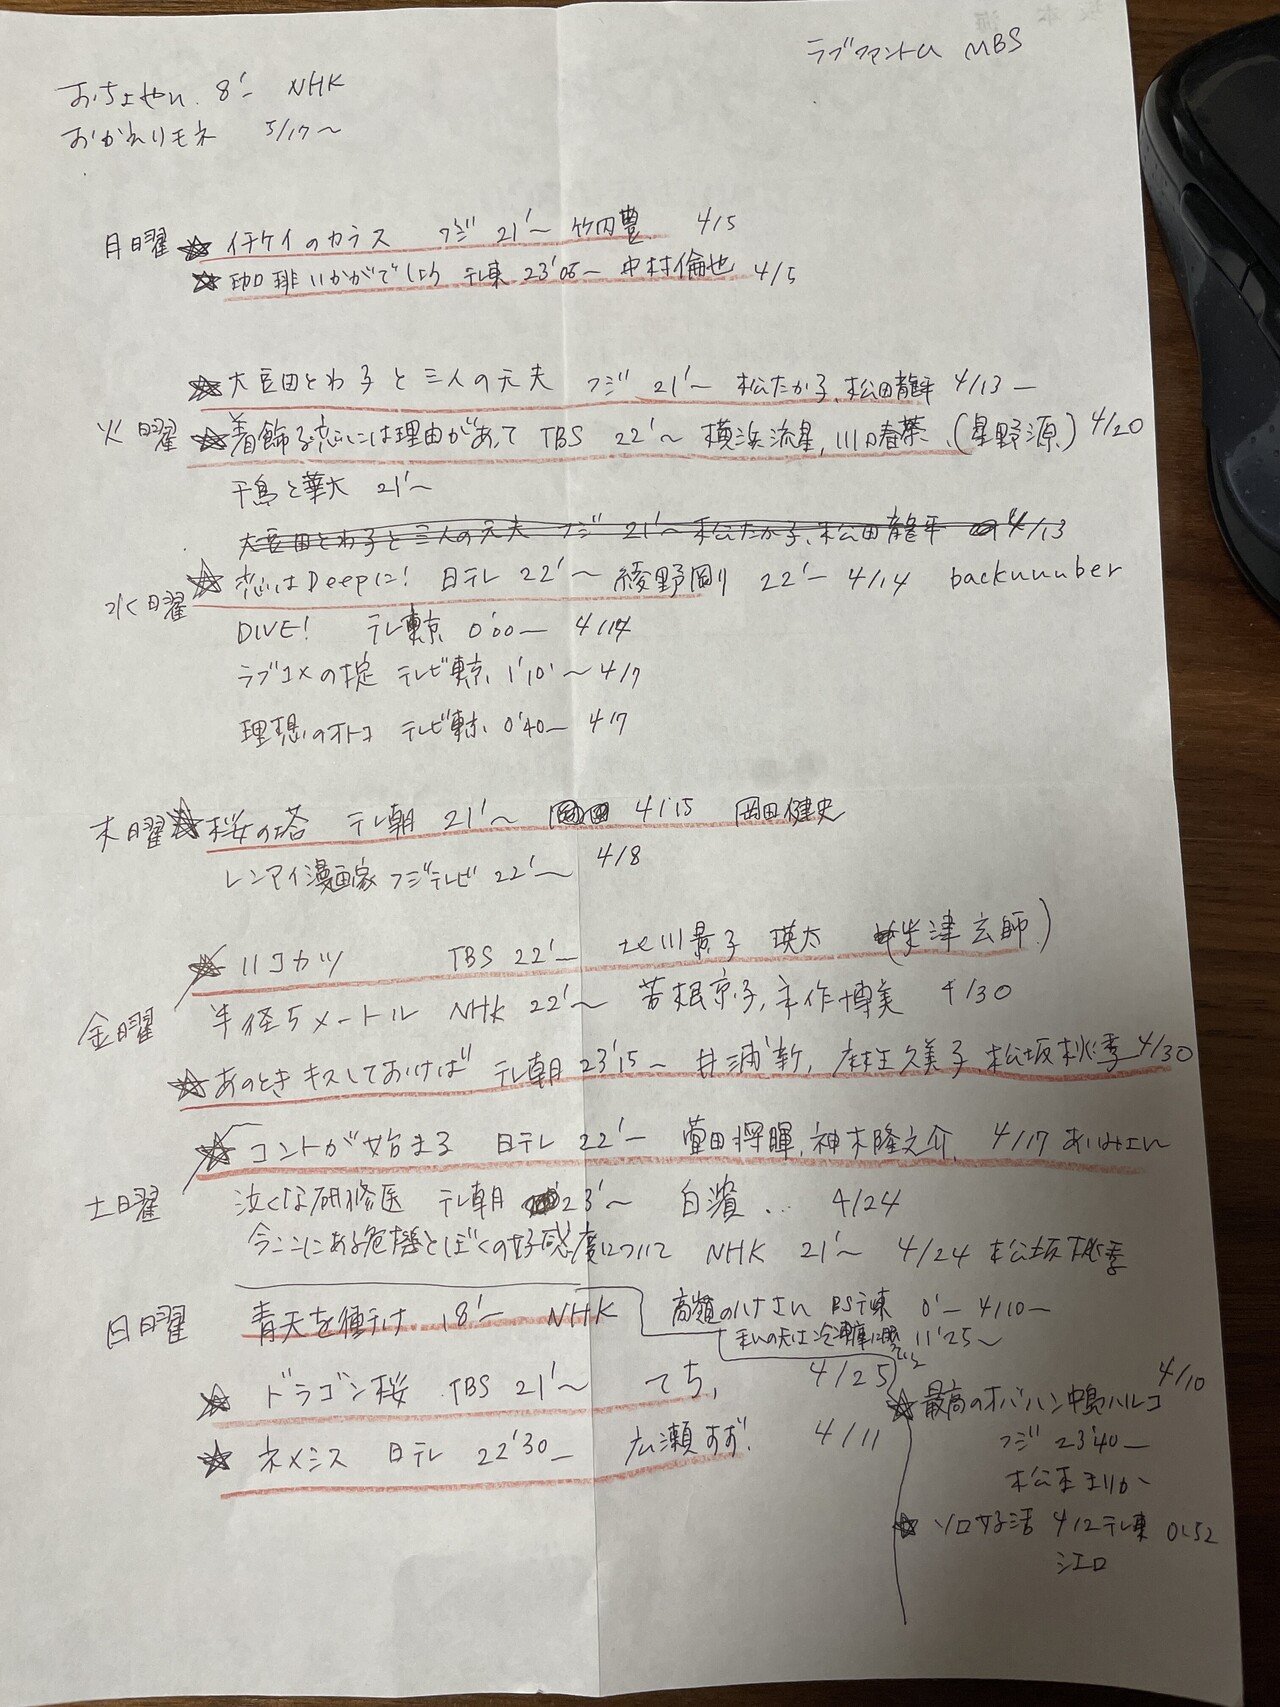 ラブファントム MBS
おちょやん 8'― NHK
おかえりモネ 5/17〜
月曜 ☆ イチケイのカラス フジ 21'〜 竹内豊 4/5
☆ 珈琲いかがでしょう テレ東 23'05― 中村倫也 4/5
☆ 大豆田とわ子と三人の元夫 フジ 21'〜 松たか子、松田龍平 4/13―
火曜 ☆ 着飾る恋には理由があって TBS 22'〜 横浜流星、川口春菜、(星野源) 4/20
千鳥と華大 21'〜
大豆田とわ子と三人の元夫 フジ 21'〜 松たか子、松田龍平 4/13
水曜 ☆ 恋はDeepに! 日テレ 22'〜 綾野剛 22'― 4/14 backnumber
DIVE! テレ東京 0'00― 4/14
ラブコメの掟 テレビ東京 1'10'〜 4/7
理想のオトコ テレビ東京 0'40― 4/7
木曜 ☆ 桜の塔 テレ朝 21'〜 4/15 岡田健史
レンアイ漫画家 フジテレビ 22'〜 4/8
☆ リコカツ TBS 22'― 北川景子 瑛太 (米津玄師)
金曜 半径5メートル NHK 22'〜 芳根京子、永作博美 4/30
☆ あのときキスしておけば テレ朝 23'15― 井浦新、麻生久美子、松坂桃李 4/30
☆ コントが始まる 日テレ 22'― 菅田将暉、神木隆之介、 4/17 あいみょん
土曜 泣くな研修医 テレ朝 23'〜 白濱… 4/24
今ここにある危機とぼくの好感度について NHK 21'〜 4/24 松坂桃李
日曜 青天を衝け 8'― NHK
高嶺のハナさん BSテ東 0'― 4/10―
11'25〜
☆ ドラゴン桜 TBS 21'〜 てち、 4/25
☆ ネメシス 日テレ 22'30― 広瀬すず 4/11
☆ 最高のオバハン中島ハルコ 4/10
フジ 23'40―
松本まりか
☆ ソロ女子活 4/2 テレ東 0:52
シエロ